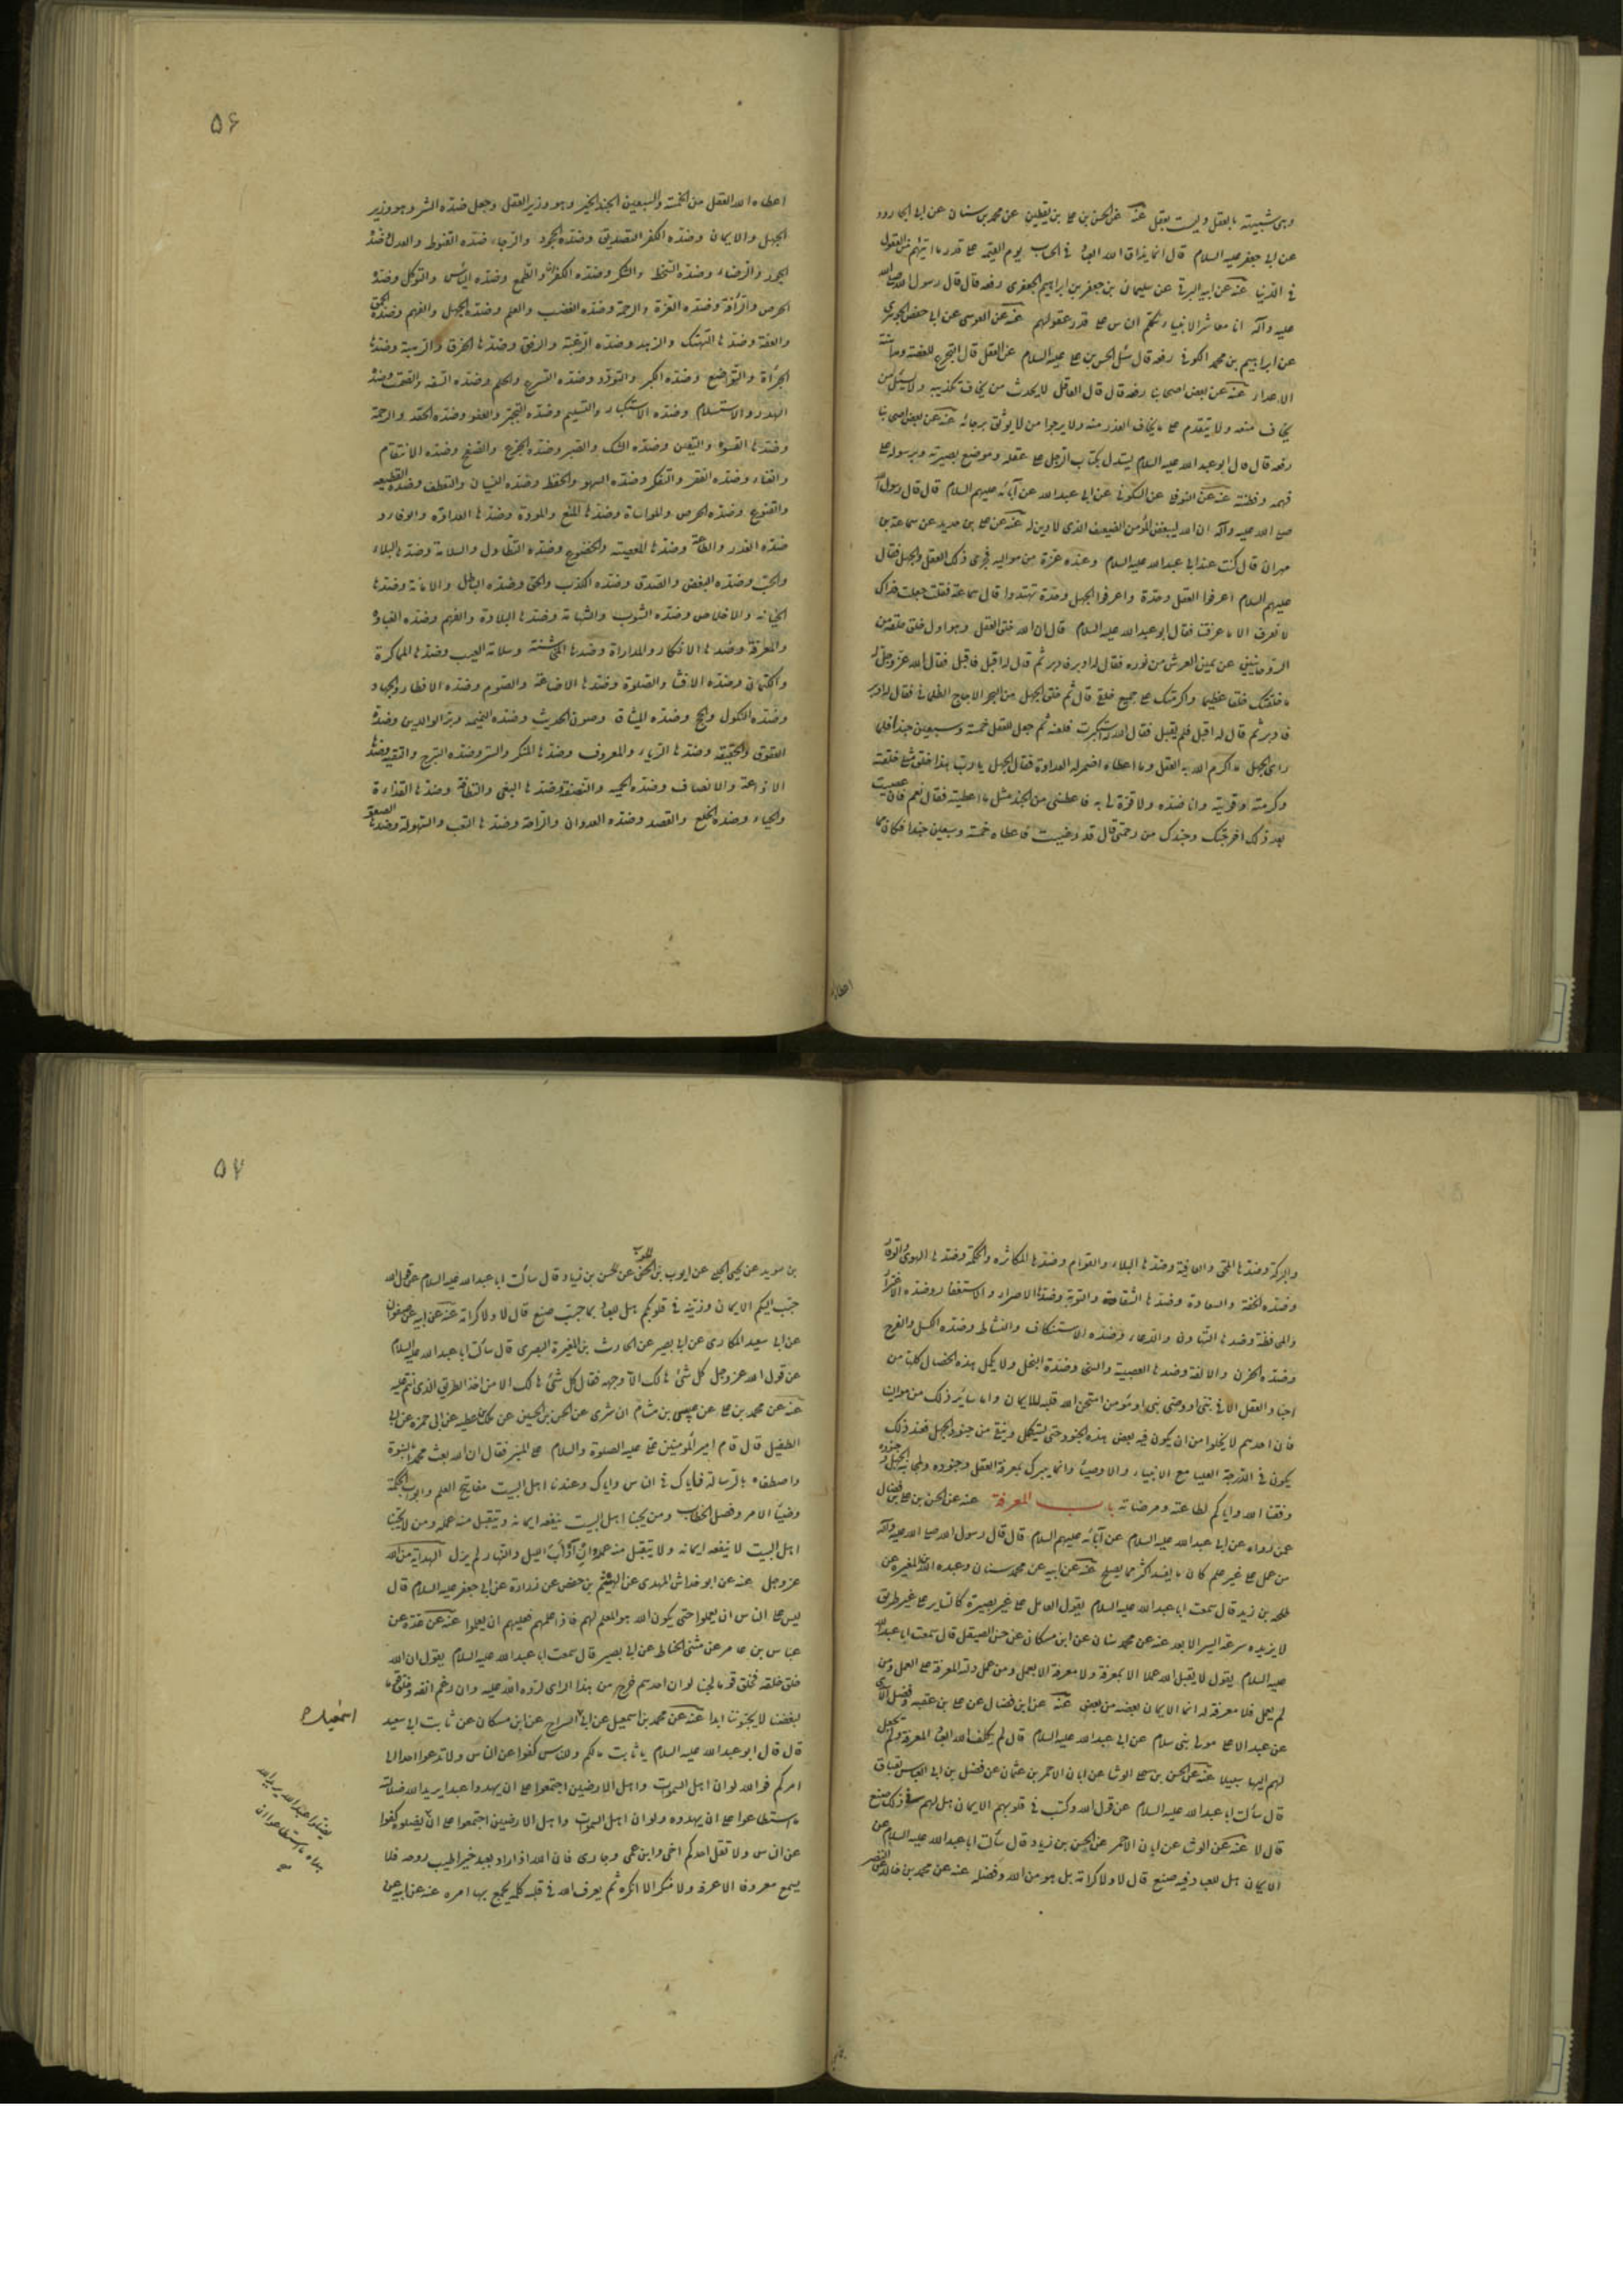 وهى شبيهة بالعقل وليست بعقل عنه عن الحسن بن على بن يقطين عن محمد بن سنان عن ابى الجارود
عن ابى جعفر عليه السلام قال انما يداق الله العباد فى الحساب يوم القيمة على قدر ما اتيهم من العقول
فى الدنيا عنه عن ابيه البرقى عن سليمان بن جعفر بن ابراهيم الجعفرى رفعه قال قال رسول الله صلى الله
عليه وآله انا معاشر الانبياء نكلم الناس على قدر عقولهم عنه عن العوسى عن ابى حفص الجوهرى
عن ابراهيم بن محمد الكوفى رفعه قال سئل الحسن بن على عليه السلام عن العقل قال التجرع للغصة ومداهنة
الاعداء عنه عن بعض اصحابنا رفعه قال قال العاقل لا يحدث من يخاف تكذيبه ولا يسئل من
يخاف منعه ولا يتقدم على ما يخاف العذر منه ولا يرجوا من لا يوثق برجائه عنه عن بعض اصحابنا
رفعه قال قال ابو عبد الله عليه السلام يستدل بكتاب الرجل على عقله وموضع بصيرته وبرسوله على
فهمه وفطنته عنه عن النوفلى عن السكونى عن ابى عبد الله عن آبائه عليهم السلام قال قال رسول الله
صلى الله عليه وآله ان الله ليبغض المؤمن الضعيف الذى لا دين له عنه عن على بن حديد عن سماعة بن
مهران قال كنت عند ابى عبد الله عليه السلام وعنده عزة من مواليه فجرى ذكر العقل والجهل فقال
عليهم السلام اعرفوا العقل وجنده واعرفوا الجهل وجنده تهتدوا قال سماعة فقلت جعلت فداك
لا نعرف الا ما عرفتنا فقال ابو عبد الله عليه السلام قال ان الله خلق العقل وهو اول خلق خلقه من
الروحانيين عن يمين العرش من نوره فقال له ادبر فادبر ثم قال له اقبل فاقبل فقال الله عز وجل له
خلقتك خلقا عظيما واكرمتك على جميع خلقى قال ثم خلق الجهل من البحر الاجاج الظلمانى فقال له ادبر
فادبر ثم قال له اقبل فلم يقبل فقال الله استكبرت فلعنه ثم جعل للعقل خمسة وسبعين جندا فلما
راى الجهل ما اكرم الله به العقل وما اعطاه اضمر له العداوة فقال الجهل يا رب هذا خلق مثلى خلقته
وكرمته وقويته وانا ضده ولا قوة لى به فاعطنى من الجند مثل ما اعطيته فقال نعم فان عصيت
بعد ذلك اخرجتك وجندك من رحمتى قال قد رضيت فاعطاه خمسة وسبعين جندا فكان مما
اعطاه
۵۶
اعطاه الله العقل من الخمسة والسبعين الجند الخير وهو وزير العقل وجعل ضده الشر وهو وزير
الجهل والايمان وضده الكفر التصديق وضده الجحود والرجاء ضده القنوط والعدل ضده
الجور والرضاء وضده السخط والشكر وضده الكفران والطمع وضده اليأس والتوكل وضده
الحرص والرأفة وضده العزة والرحمة وضده الغضب والعلم وضده الجهل والفهم وضده الحمق
والعفة وضدها التهتك والزهد وضده الرغبة والرفق وضدها الخرق والرهبة وضدها
الجرأة والتواضع وضده الكبر والتؤدد وضده التسرع والحلم وضده السفه والصمت وضده
الهدر والاستسلام وضده الاستكبار والتسليم وضده التجبر والعفو وضده الحقد والرحمة
وضدها القسوة واليقين وضده الشك والصبر وضده الجزع والصفح وضده الانتقام
والغناء وضده الفقر والتفكر وضده السهو والحفظ وضده النسيان والتعطف وضده القطيعة
والقنوع وضده الحرص والمواساة وضدها المنع والمودة وضدها العداوة والوفاء و
ضده الغدر والطاعة وضدها المعصية والخضوع وضده التطاول والسلامة وضدها البلاء
والحب وضده البغض والصدق وضده الكذب والحق وضده الباطل والامانة وضدها
الخيانة والاخلاص وضده الشوب والشهامة وضدها البلادة والفهم وضده الغباوة
والمعرفة وضدها الانكار والمداراة وضدها المكاشفة وسلامة الغيب وضدها المماكرة
والكتمان وضده الافشاء والصلوة وضدها الاضاعة والصوم وضده الافطار والجهاد
وضده النكول والحج وضده الميثاق وصون الحديث وضده النميمة وبر الوالدين وضده
العقوق والحقيقة وضدها الرياء والمعروف وضدها المنكر والستر وضده التبرج والتقية وضدها
الاذاعة والانصاف وضده الحمية والتهيئة وضدها البغى والنظافة وضدها القذارة
والحياء وضده الخلع والقصد وضده العدوان والراحة وضدها التعب والسهولة وضدها الصعوبة
والبركة وضدها المحق والعافية وضدها البلاء والقوام وضدها المكاثرة والحكمة وضدها الهوى والوقار
وضده الخفة والسعادة وضدها الشقاوة والتوبة وضدها الاصرار والاستغفار وضده الاغترار
والمحافظة وضدها التهاون والدعاء وضده الاستنكاف والنشاط وضده الكسل والفرح
وضده الحزن والالفة وضدها العصبية والسخى وضده البخل ولا يكمل هذه الخصال كلها من
اجناد العقل الا فى نبى او وصى نبى او مؤمن امتحن الله قلبه للايمان واما سائر ذلك من موالينا
فان احدهم لا يخلوا من ان يكون فيه بعض هذه الجنود حتى يستكمل وينقى من جنود الجهل فعند ذلك
يكون فى الدرجة العليا مع الانبياء والاوصياء وانما يدرك بمعرفة العقل وجنوده ولمجانبة الجهل وجنوده
وفقنا الله واياكم لطاعته ومرضاته باب المعرفة عنه عن الحسن بن على بن فضال
عمن رواه عن ابى عبد الله عليه السلام عن آبائه عليهم السلام قال قال رسول الله صلى الله عليه وآله
من عمل على غير علم كان ما يفسد اكثر مما يصلح عنه عن ابيه عن محمد سنان وعبد الله بن المغيرة عن
طلحة بن زيد قال سمعت ابا عبد الله عليه السلام يقول العامل على غير بصيرة كالساير على غير طريق
لا يزيده سرعة السير الا بعد عنه عن محمد سنان عن ابن مسكان عن حسن الصيقل قال سمعت ابا عبد الله
عليه السلام يقول لا يقبل الله عملا الا بمعرفة ولا معرفة الا بعمل ومن عمل دلته المعرفة على العمل ومن
لم يعمل فلا معرفة له انما الايمان بعضه من بعض عنه عن ابن فضال عن على بن عقبة وفضل الاسدى
عن عبد الاعلى مولى بنى سلام عن ابى عبد الله عليه السلام قال لم يكلف الله العباد المعرفة ولم يجعل
لهم اليها سبيلا عنه عن الحسن بن على الوشا عن ابان الاحمر بن عثمان عن فضل بن ابى العباس بقباق
قال سألت ابا عبد الله عليه السلام عن قول الله وكتب فى قلوبهم الايمان هل لهم فى ذلك صنع
قال لا عنه عن الوشا عن ابان الاحمر عن الحسن بن زياد قال سألت ابا عبد الله عليه السلام عن
الايمان هل للعباد فيه صنع قال لا ولا كرامة بل هو من الله وفضله عنه عن محمد بن خالد عن النضر
۵۷
بن سويد عن يحيى الحلبى عن ايوب بن الحر عن الحسن بن زياد قال سألت ابا عبد الله عليه السلام عن قول الله
حبب اليكم الايمان وزينه فى قلوبكم هل للعباد بما حبب صنع قال لا ولا كرامة عنه عن ابيه عن صفوان
عن ابى سعيد المكارى عن ابى بصير عن الحارث بن المغيرة النصرى قال سألت ابا عبد الله عليه السلام
عن قول الله عز وجل كل شئ هالك الا وجهه فقال كل شئ هالك الا من اخذ الطريق الذى انتم عليه
عنه عن محمد بن على عن عيسى بن هشام الناشرى عن الحسن بن الحسين عن مالك بن عطية عن ابى حمزة عن ابى
الطفيل قال قام امير المؤمنين على عليه الصلوة والسلام على المنبر فقال ان الله بعث محمدا بالنبوة
واصطفاه بالرسالة فاناك فى الناس واناك وعندنا اهل البيت مفاتيح العلم وابواب الحكمة
وضياء الامر وفصل الخطاب ومن يحبنا اهل البيت ينفعه ايمانه ويتقبل منه عمله ومن لا يحبنا
اهل البيت لا ينفعه ايمانه ولا يتقبل منه عمله وان اداب الليل والنهار لم يزل الهداية من الله
عز وجل عنه عن ابو خداش المهدى عن الهيثم بن حفص عن زرارة عن ابى جعفر عليه السلام قال
ليس على الناس ان يعلموا حتى يكون الله هو المعلم لهم فاذا علمهم فعليهم ان يعلموا عنه عن عدة عن
عباس بن عامر عن مثنى الحناط عن ابى بصير قال سمعت ابا عبد الله عليه السلام يقول ان الله
خلق خلقه فخلق قوما لحبنا لو ان احدهم خرج من هذا الراى لرده الله عليه وان رغم انفه وخلق قوما
لبغضنا لا يحبوننا ابدا عنه عن محمد بن اسمعيل عن ابى السراج عن ابن مسكان عن ثابت ابى سعيد
قال قال ابو عبد الله عليه السلام يا ثابت مالكم وللناس كفوا عن الناس ولا تدعوا احدا الى
امركم فو الله لو ان اهل السموات واهل الارضين اجتمعوا على ان يهدوا عبدا يريد الله ضلالته
ما استطاعوا على ان يهدوه ولو ان اهل السموات واهل الارضين اجتمعوا على ان يضلوه كفوا
عن الناس ولا تقل احدكم اخى وابن عمى وجارى فان الله اذا اراد بعبد خيرا طيب روحه فلا
يسمع معروفا الا عرفه ولا منكرا الا انكره ثم يقذف الله فى قلبه كلمة يجمع بها امره عنه عن ابيه عن
اسمعيل
يضلوا عبدا لله يريد الله
هداه ما استطاعوا ان